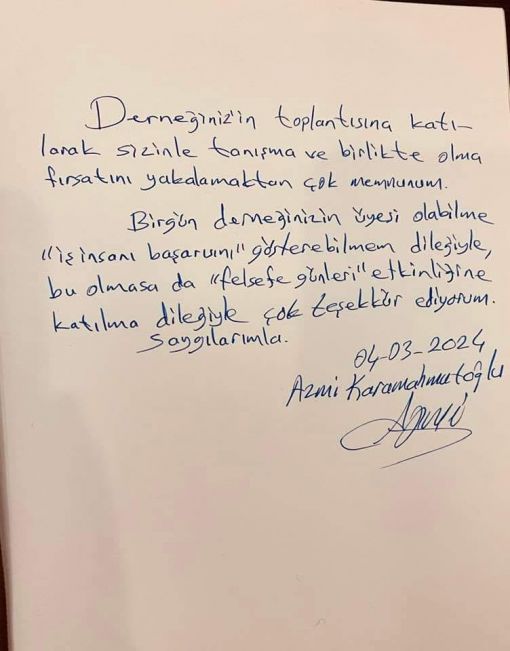 Derneğiniz'in toplantısına katı-
larak sizinle tanışma ve birlikte olma
fırsatını yakalamaktan çok memnunum.
Birgün derneğinizin üyesi olabilme
"iş insanı başarıını" gösterebilmem dileğiyle,
bu olmasa da "felsefe günleri" etkinliğine
katılma dileğiyle çok teşekkür ediyorum.
Saygılarımla.
04-03-2024
Azmi Karamahmutoğlu